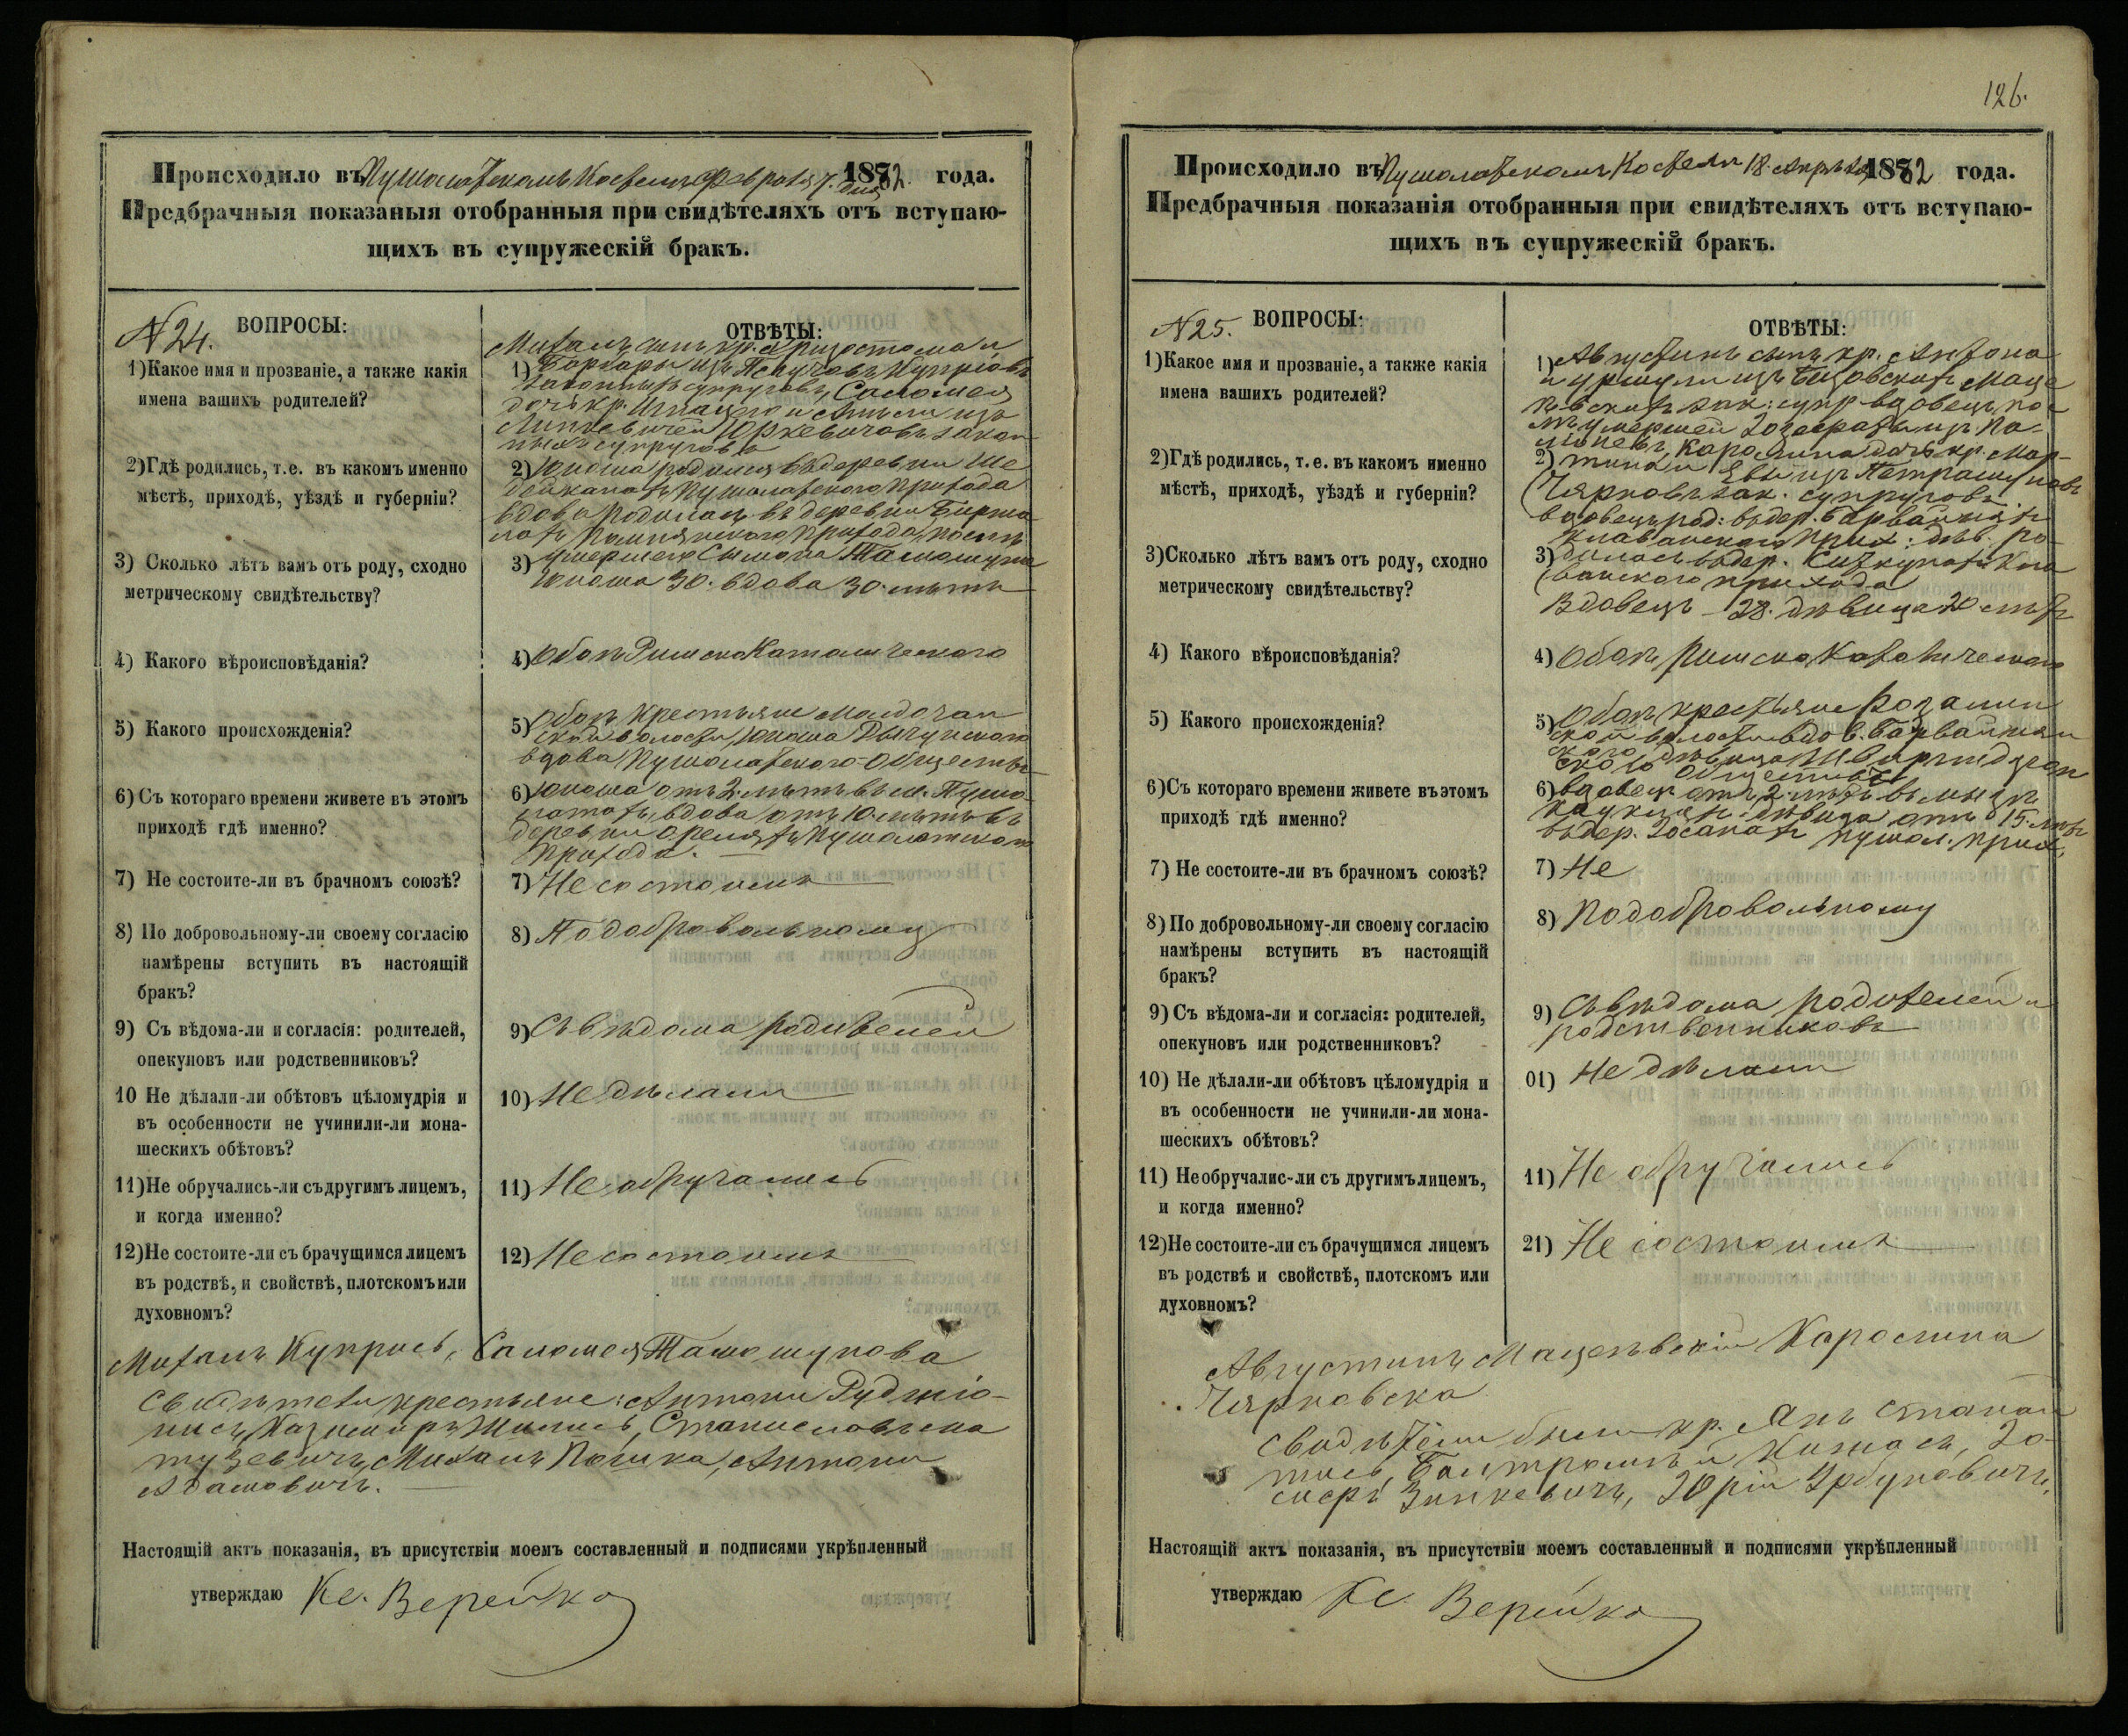 Происходило въ Пушолатскомъ Костелѣ Февраля 7. дня 1882. года.
Предбрачныя показаныя отобранныя при свидѣтеляхъ отъ вступаю-
щихъ въ супружескій бракъ.
N 24.
ВОПРОСЫ:
ОТВѢТЫ:
1) Какое имя и прозваніе, а также какія
имена вашихъ родителей?
Михалъ сынъ кр. Хризостома и
1) Барбары изъ Купрісовъ
законныхъ супруговъ, Саломея
дочь кр. Игнацого и изъ
Юркевичовъ закон-
ныхъ супруговъ
2) Гдѣ родились, т.е. въ какомъ именно
мѣстѣ, приходѣ, уѣздѣ и губерніи?
2) Юноша родился въ деревни Ше
Пушолатского прихода
вдова родилась въ деревни Биржа
прихода, послѣ
3) Сколько лѣтъ вамъ отъ роду, сходно
метрическому свидѣтельству?
3) умершего Сымона Тамошуна
Юноша 30. вдова 30. лѣтъ
4) Какого вѣроисповѣданія?
4) Обоя РимскоКатолического
5) Какого происхожденія?
5) Обоя крестьяне
ской волости, юноша
вдова Пушолатского Общества
6) Съ котораго времени живете въ этомъ
приходѣ гдѣ именно?
6) Юноша отъ 2. лѣтъ въ м. Пушо-
латахъ, вдова отъ 10. лѣтъ въ
деревни Пушолатского
прихода.
7) Не состоите-ли въ брачномъ союзѣ?
7) Не состоимъ
8) По добровольному-ли своему согласію
намѣрены вступить въ настоящій
бракъ?
8) По добровольному
9) Съ вѣдома-ли и согласія: родителей,
опекуновъ или родственниковъ?
9) Съ вѣдома родителей
10 Не дѣлали-ли обѣтовъ цѣломудрія и
въ особенности не учинили-ли мона-
шескихъ обѣтовъ?
10) Не дѣлали
11) Не обручались-ли съ другимъ лицемъ,
и когда именно?
11) Не обручались
12) Не состоите-ли съ брачущимся лицемъ
въ родствѣ, и свойствѣ, плотскомъ или
духовномъ?
12) Не состоимъ
Михалъ Купрись, Саломея Тамошунова
Свидѣтели крестьяне: Антони Руджіо-
нись, Казимиръ Жились, Станиславъ Ма
тузевичъ, Михалъ Пошка, Антони
Адамовичъ.
Настоящій актъ показанія, въ присутствіи моемъ составленный и подписями укрѣпленный
утверждаю Кс. Верейко
126.
Происходило въ Пушолатскомъ Костелѣ 18. Апрѣля 1882 года.
Предбрачныя показанія отобранныя при свидѣтеляхъ отъ вступаю-
щихъ въ супружескій бракъ.
N 25.
ВОПРОСЫ:
ОТВѢТЫ:
1) Какое имя и прозваніе, а также какія
имена вашихъ родителей?
1) Августинъ сынъ кр. Антона
и Уршули изъ Маце
левскихъ зак: супр вдовецъ пос
лѣ умершей изъ По-
Каролина дочь кр. Мар-
2) Гдѣ родились, т.е. въ какомъ именно
мѣстѣ, приходѣ, уѣздѣ и губерніи?
2) тина и Евы изъ Петрашуновъ
Чярновъ зак. супруговъ
вдовецъ род: въ дер.
прих: дѣв. ро-
3) Сколько лѣтъ вамъ отъ роду, сходно
метрическому свидѣтельству?
3) дилась въ дер. Кла
ванского прихода
Вдовецъ 28. дѣвица 20 лѣтъ
4) Какого вѣроисповѣданія?
4) Обоя Римско Католического
5) Какого происхожденія?
5) Обоя крестьяне Розалин
ской волости вдов.
ского, дѣвица
ского общества
6) Съ котораго времени живете въ этомъ
приходѣ гдѣ именно?
6) вдовецъ отъ 2. лѣтъ въ
дѣвица отъ 15. лѣтъ
въ дер. пушол. прих.
7) Не состоите-ли въ брачномъ союзѣ?
7) Не
8) По добровольному-ли своему согласію
намѣрены вступить въ настоящій
бракъ?
8) По добровольному
9) Съ вѣдома-ли и согласія: родителей,
опекуновъ или родственниковъ?
9) Съ вѣдома родителей и
родственниковъ
10) Не дѣлали-ли обѣтовъ цѣломудрія и
въ особенности не учинили-ли мона-
шескихъ обѣтовъ?
01) Не дѣлали
11) Не обручалис-ли съ другимъ лицемъ,
и когда именно?
11) Не обручались
12) Не состоите-ли съ брачущимся лицемъ
въ родствѣ и свойствѣ, плотскомъ или
духовномъ?
21) Не состоимъ
Августинъ Мацелѣвскій Каролина
Чярновска
Свидѣтели были кр. Янъ
Зинкевичъ, Юрій Урбуновичъ,
Настоящій актъ показанія, въ присутствіи моемъ составленный и подписями укрѣпленный
утверждаю Кс. Верейко